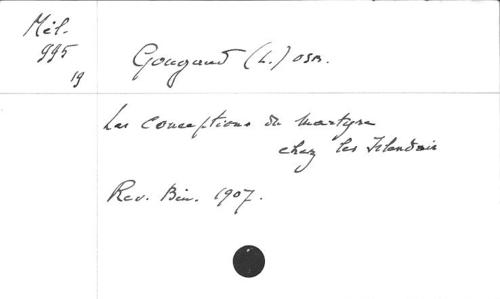 Mél.
995
19
Gougaud (L.) OSB.
Les conceptions du martyre
chez les Irlandais
Rev. Bén. 1907.